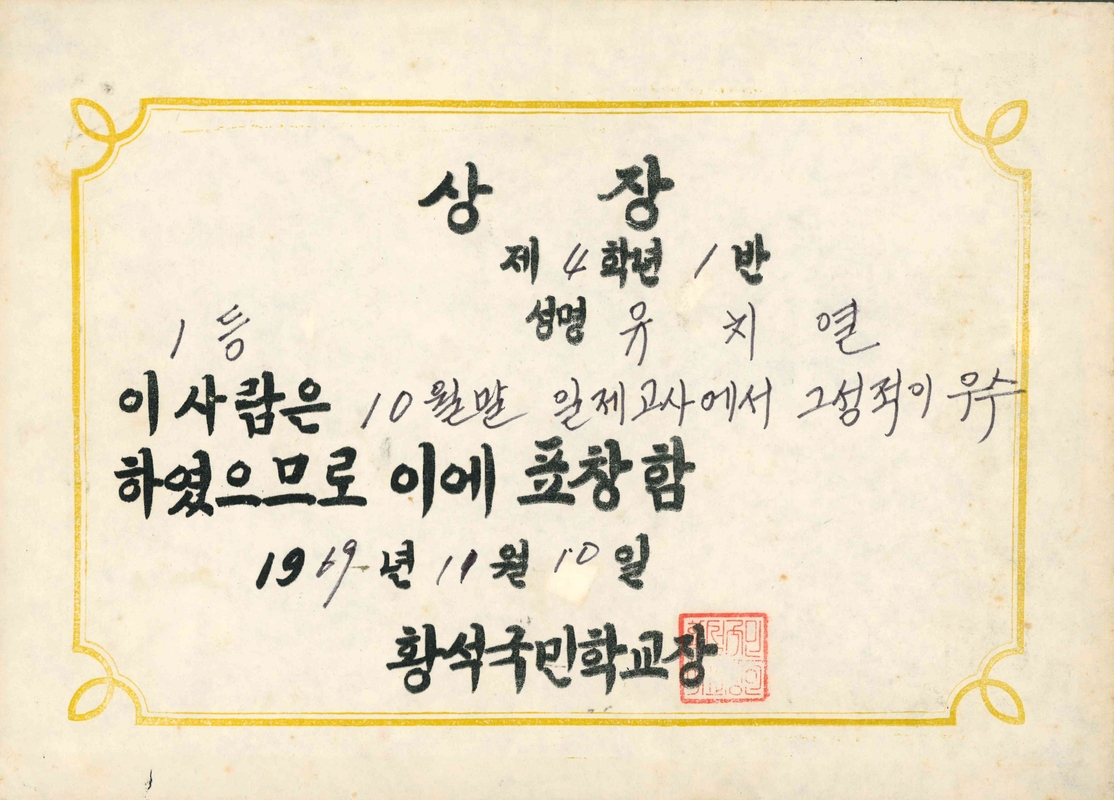 상 장
제 4 학년 1 반
성명 유 치 열
1 등
이 사람은 10월말 일제고사에서 그성적이 우수
하였으므로 이에 표창함
1969년 11월 10일
황석국민학교장